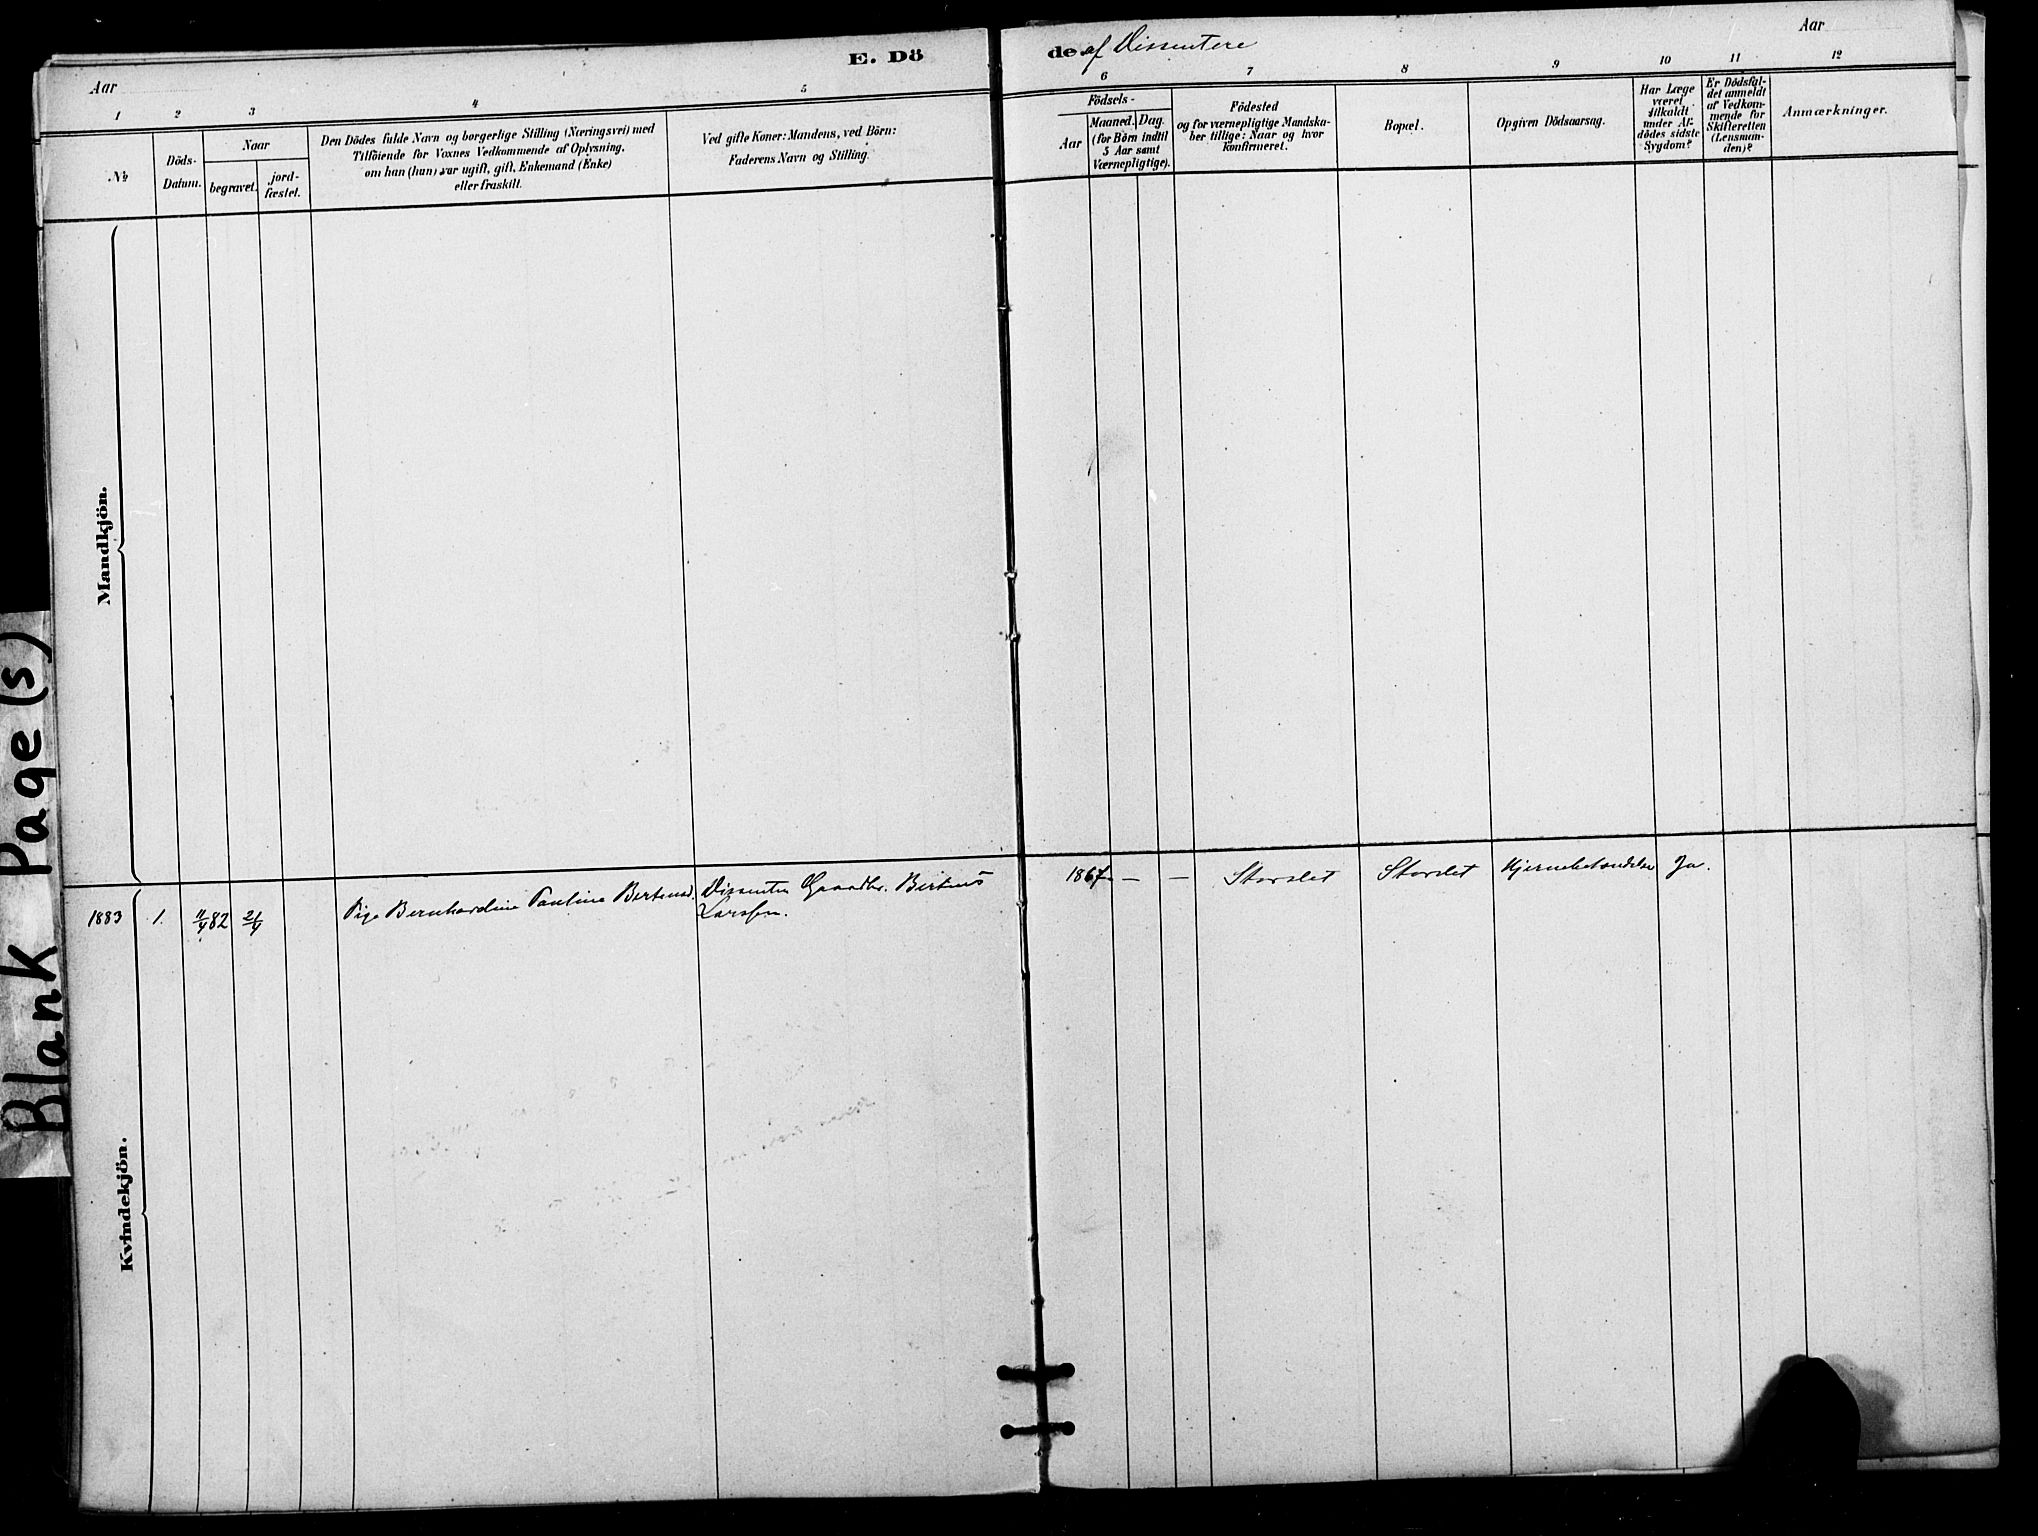 E. Dö
de af Dissentere
Aar
Aar
1
2
3
4
5
6
7
8
9
10
11
12
No
Döds-
Datum.
Naar
begravet.
jord-
fæstet.
Den Dödes fulde Navn og borgerlige Stilling (Næringsvei) med
Tilföiende for Voxnes Vedkommende af Oplysning,
om han (hun) var ugift, gift, Enkemand (Enke)
eller fraskilt.
Ved gifte Koner: Mandens, ved Börn:
Faderens Navn og Stilling.
Födsels-
Aar
Maaned.
Dag.
(for Börn indtil
5 Aar samt
Værnepligtige).
Födested
og for værnepligtige Mandska-
ber tillige: Naar og hvor
konfirmeret.
Bopæl.
Opgiven Dödsaarsag.
Har Læge
været
tilkaldt
under Af-
dödes sidste
Sygdom?
Er Dödsfal-
det anmeldt
af Vedkom-
mende for
Skifteretten
(Lensman-
den)?
Anmærkninger.
Mandkjön.
Kvindekjön.
1883 1. 11/4 82 21/4 Pige Bernhardine Pauline Bertensd. Dissenter Gaardbr. Bertinus
Larssen.
1867. — — Storslet Storslet Hjernebetændelse Ja.
Blank Page(s)